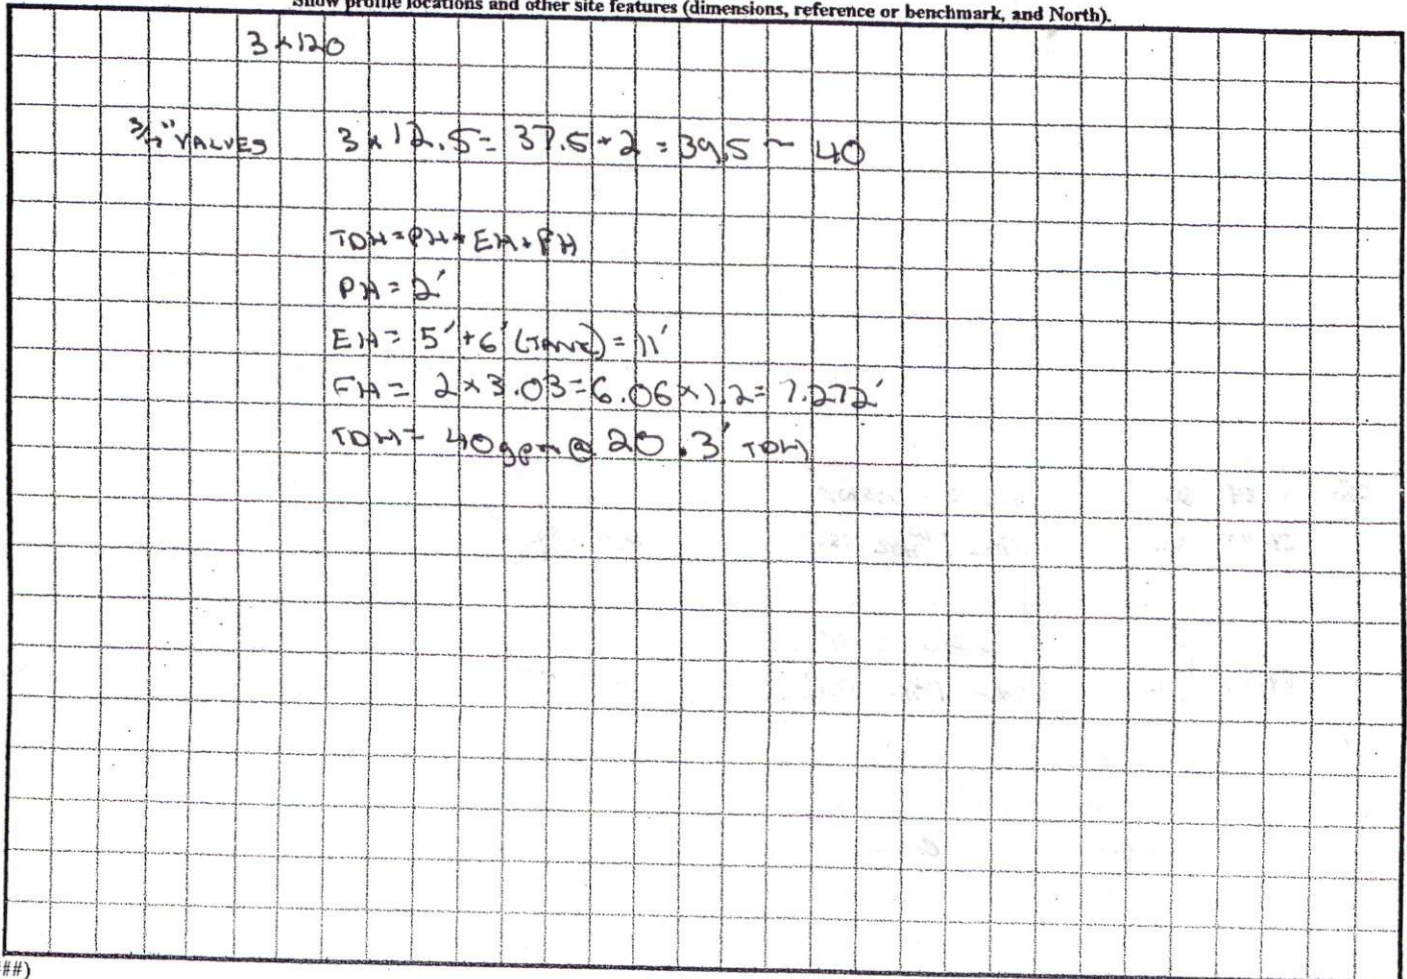 Show profile locations and other site features (dimensions, reference or benchmark, and North).
3 x 120
3/4" VALVES 3 x 12.5 = 37.5 + 2 = 39.5 ~ 40
TDH = PH + EH + FH
PH = 2'
EH = 5' + 6' (TANK) = 11'
FH = 2 x 3.03 = 6.06 x 1.2 = 7.272'
TDH = 40gpm @ 20.3' TDH
##)